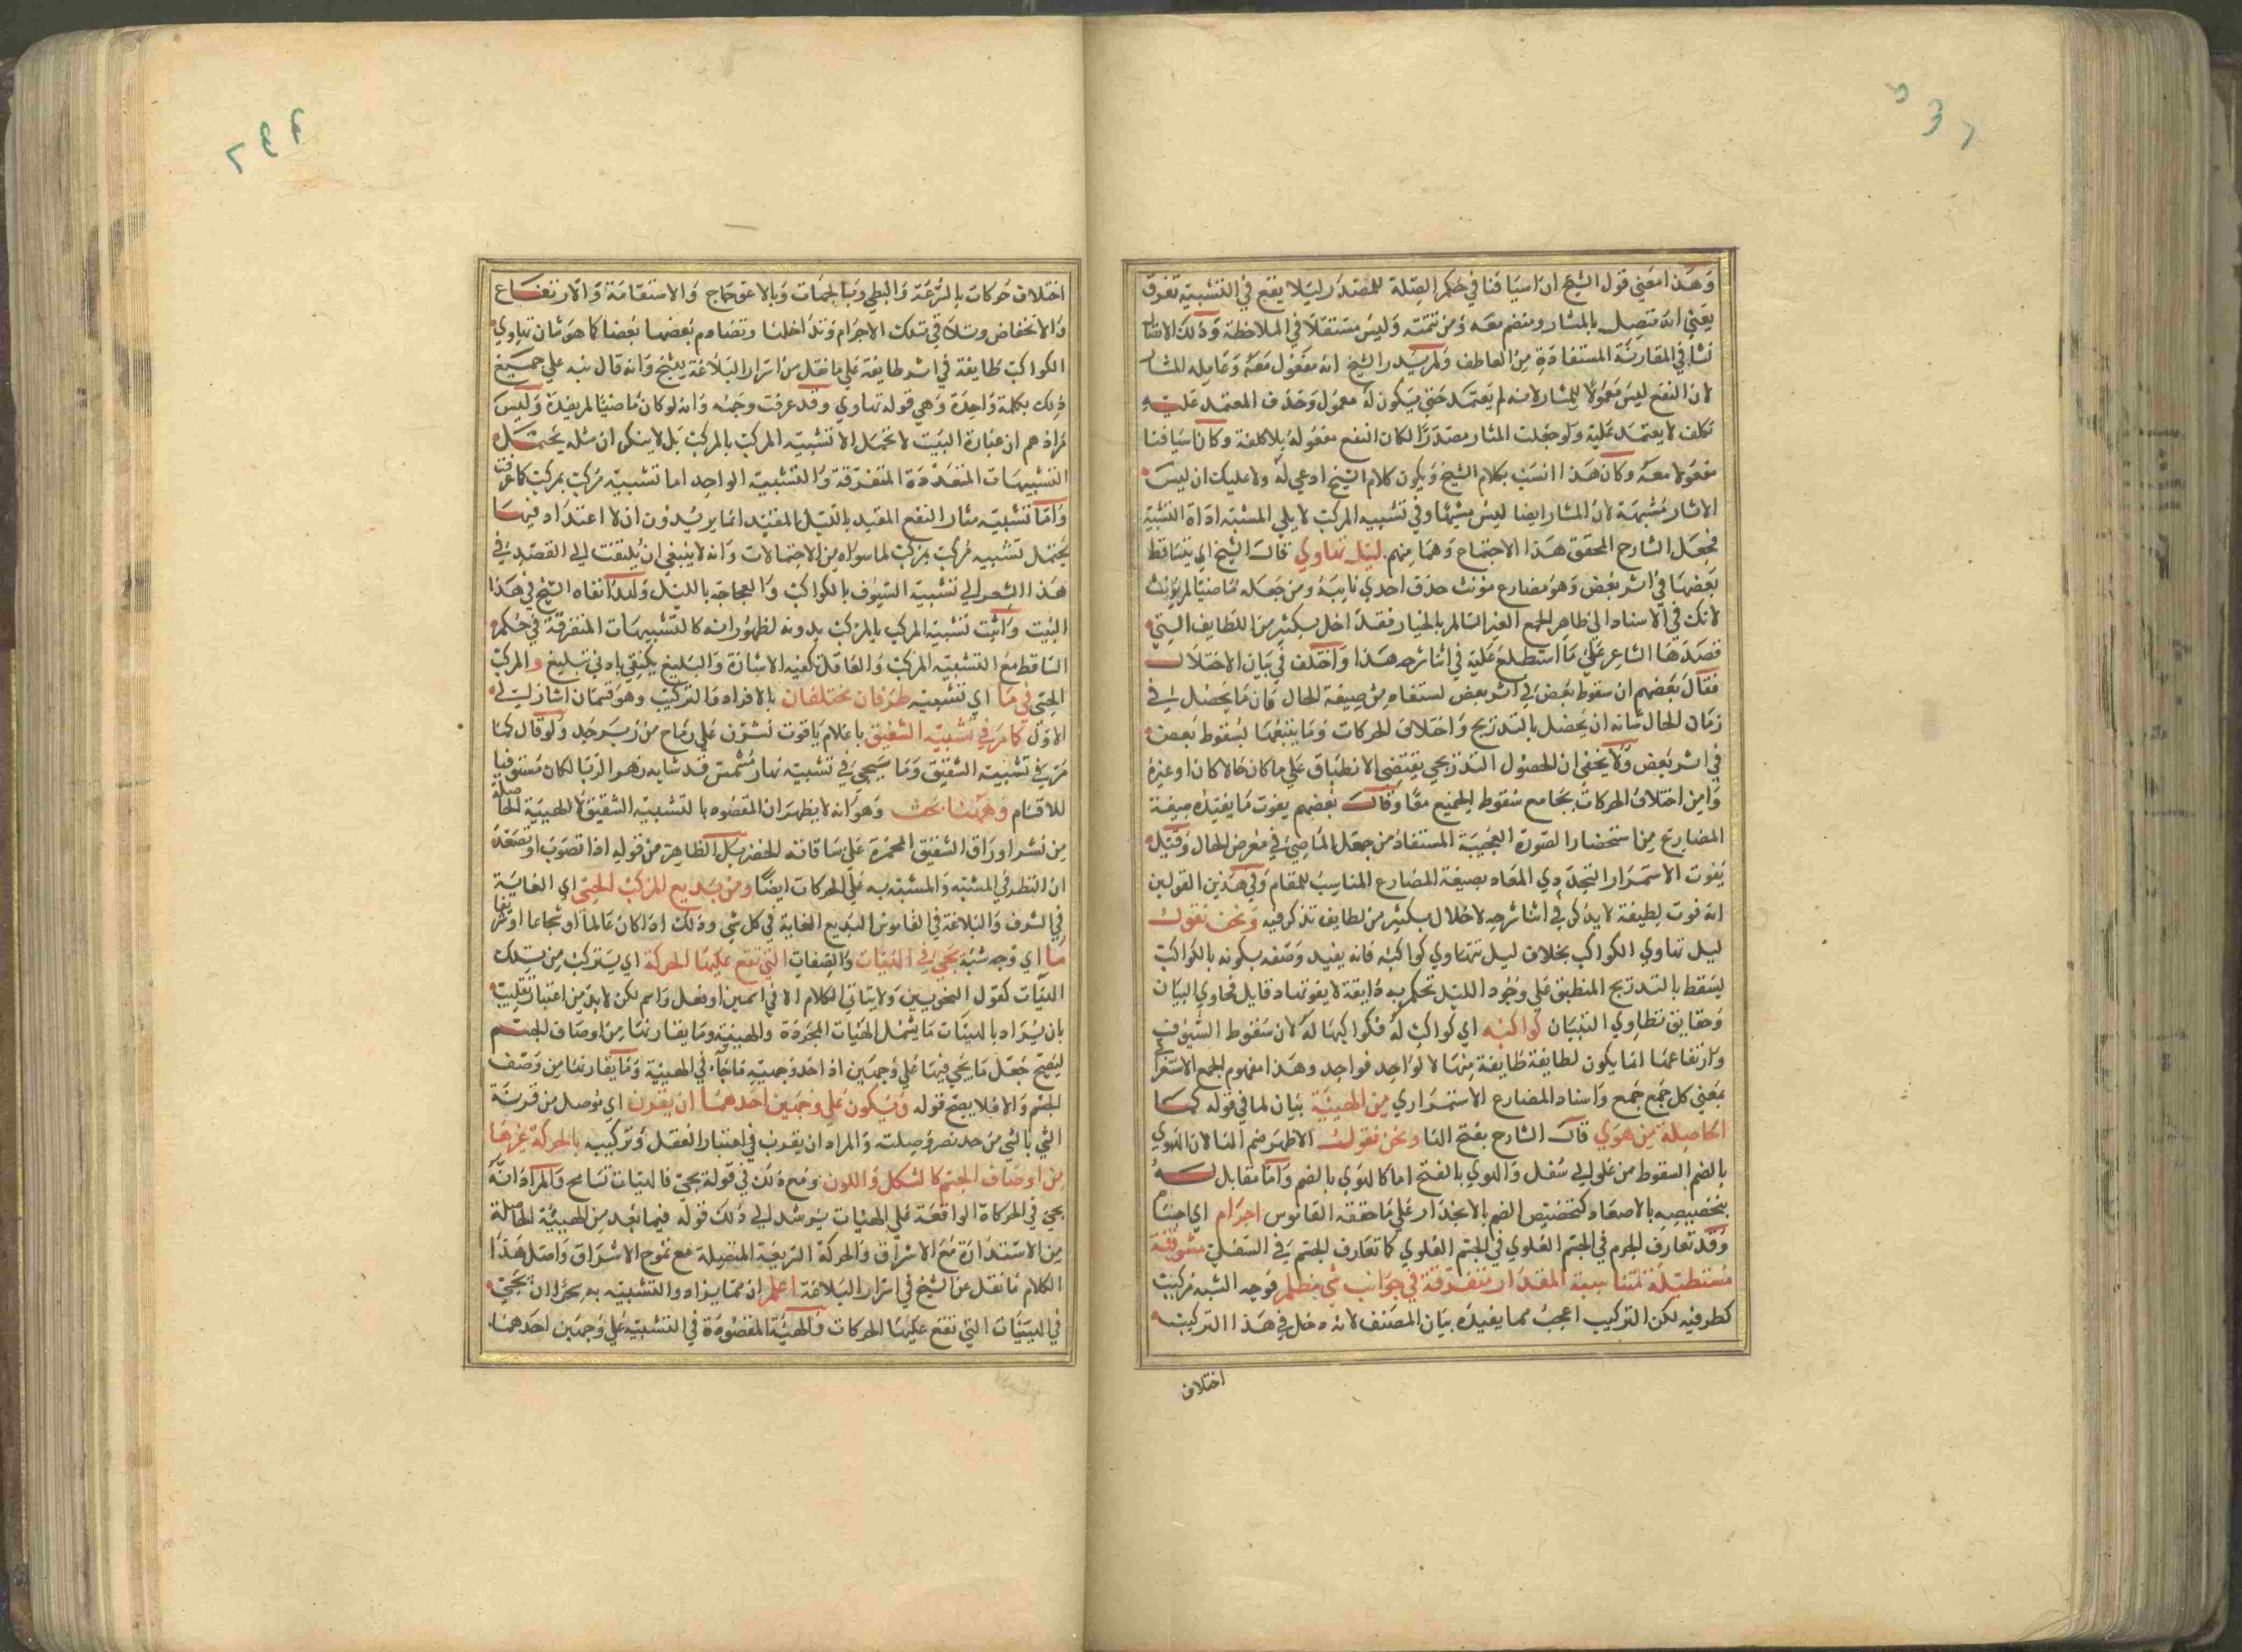 وهذا معنى قول الشيخ ان اسيافنا في حكم الصلة للمصدر ليلا يقع في التشبيه تفرق
يعني انه متصل بالمثار ومنضم معه ومن تتمته وليس مستقلا في الملاحظة وذلك الاتصال
نشا في المقارنة المستفادة من العاطف ولم يرد الشيخ انه مفعول معه وعامله المثار
لان النقع ليس معمولا للمثار لانه لم يعتمد حتى يكون له معمول وحذف المعتمد عليه
تكلف لا يعتمد عليه ولو جعلت المثار مصدرا لكان النقع مفعوله بلا كلفة وكان اسيافنا
مفعولا معه وكان هذا انسب بكلام الشيخ ويكون كلام الشيخ ادعي له ولا عليك ان ليس
الاثار مشبهة لان المثار ايضا ليس مشبها وفي تشبيه المركب لا يلي المشبه اداة التشبيه
فجعل الشارح المحقق هذا الاجتماع وهما منهم ليل تهاوي قال الشيخ اي يتساقط
بعضها في اثر بعض وهو مضارع مونث حذف احدي تاييه ومن جعله ماضيا لم يونث
لانك في الاسناد الى ظاهر الجمع الغير السالم بالخيار فقد اخل بكثير من اللطايف التي
قصدها الشاعر على ما استطلع عليه في اثنا شرحه هذا واختلف في بيان الاختلال
فقال بعضهم ان سقوط بعض في اثر بعض لستفاد من صيغة الحال فان ما يحصل في
زمان الحال شانه ان يحصل بالتدريج واختلاف الحركات وما يتبعها بسقوط بعض
في اثر بعض ولا يخفى ان الحصول التدريجي يقتضي الانطباق على ما كان حالا كان او غيره
واين اختلاف الحركات بجامع سقوط الجميع معا وقال بعضهم يفوت ما يفيده صيغة
المضارع من استحضار الصورة العجيبة المستفاد من جعل الماضي في معرض الحال وقيل
يفوت الاستمرار التجددي المفاد بصيغة المضارع المناسب للمقام وفي هذين القولين
انه فوت لطيفة لا يدكر في اثنا شرحه لاخلال بكثير من لطايف تذكر فيه ونحن نقول
ليل تهاوي الكواكب بخلاف ليل تتهاوي كواكبه فانه يفيد وصفه بكونه بالكواكب
ليسقط بالتدريج المنطبق على وجود الليل تحكم به ذايقة لا يفوتها دقايق فحاوي البيان
وحقايق تطاوي التبيان كواكبه اي كواكب له فكواكبها له لان سقوط السيوف
وارتفاعها انما يكون لطايفة طايفة منها لا لواحد فواحد وهذا مفهوم الجمع الاستغراقي
بمعنى كل جمع جمع واسناد المضارع الاستمراري من الهيئة بيان لما في قوله كما
الحاصلة من هوي قال الشارح بفتح الها ونحن نقول الاظهر ضم الها لان الهوي
بالضم السقوط من علو الى سفل والهوي بالفتح اما كالهوي بالضم واما مقابل له
بتخصيصه بالاصعاد كتخصيص الضم بالانحدار على ما حققه القاموس اجرام اي اجسام
وقد تعارف الجرم في الجسم العلوي في الجسم العلوي كما تعارف الجسم في السفلي مشرقة
مستطيلة متناسبة المقدار متفرقة في جوانب شي مظلم فوجه الشبه مركب
كطرفيه لكن التركيب اعجب مما يفيده بيان المصنف لانه دخل في هذا التركيب
اختلاف
اختلاف حركات بالسرعة والبطي وبالجهات وبالاعوجاج والاستقامة والارتفاع
والانخفاض وتلاقي تلك الاجرام وتداخلها وتصادم بعضها بعضا كما هو شان تهاوي
الكواكب طايفة في اثر طايفة على ما نقل من اسرار البلاغة للشيخ وانه قال نبه على جميع
ذلك بكلمة واحدة وهي قوله تهاوي وقد عرفت وجهه وانه لو كان ماضيا لم يفده وليس
مرادهم ان عبارة البيت لا تحتمل الا تشبيه المركب بالمركب بل لا ينكر ان مثله يحتمل
التشبيهات المتعددة المتفرقة والتشبيه الواحد اما تشبيه مركب بمركب كما عرفت
واما تشبيه مثار النقع المقيد بالليل المقيد انما يريدون ان لا اعتداد فيها
يحتمل تشبيه مركب بمركب لما سواه من الاحتمالات وانه لا ينبغي ان يلتفت الى القصد في
هذا الشعر الى تشبيه السيوف بالكواكب والعجاجة بالليل ولهذا نفاه الشيخ في هذا
البيت واثبت تشبيه المركب بالمركب بدونه لظهور انه كالتشبيهات المتفرقة في حكم
الساقط مع التشبيه المركب والعاقل تكفيه الاشارة والبليغ يكتفي بادنى تبليغ والمركب
الحسي في ما اي تشبيه طرفان مختلفان بالافراد والتركيب وهو قسمان اشار الى
الاول كما مر في تشبيه الشقيق باعلام ياقوت نشرن على رماح من زبرجد ولو قال كما
مر في تشبيه الشقيق وما سيجي في تشبيه نهار مشمس قد شابه زهر الربا لكان مستوفيا
للاقسام وههنا بحث وهو انه لا يظهر ان المقصود بالتشبيه الشقيق الا الهيئة الحاصلة
من نشر اوراق الشقيق المحمرة على ساقاته الخضر بل الظاهر من قوله اذا تصوب او تصعد
ان النظر في المشبه والمشبه به على الحركات ايضا ومن بديع المركب الحسي اي الغاية
في الشرف والبلاغة في القاموس البديع الغاية في كل شي وذلك اذا كان عالما او شجاعا او شريفا
ما اي وجه شبه يجي في الهيات والصفات التي تقع عليها الحركة اي يتركب من تلك
الهيات كقول النحويين ولا يتاتى الكلام الا في اسمين او فعل واسم لكن لابد من اعتبار تغليب
بان يراد بالهيات ما يشمل الهيات المجردة والهيئة وما يقارنها من اوصاف الجسم
ليصح جعل ما يجي فيها على وجهين اذ احد وجهيه ما جاء في الهيئة وما يقارنها من وصف
الجسم والا فلا يصح قوله ويكون على وجهين احدهما ان يقرن اي توصل من قرنة
الشي بالشي من حد نصر وصلته والمراد ان يقرن في اعتبار العقل وتركيبه بالحركة غيرها
من اوصاف الجسم كالشكل واللون ومع ذلك في قوله يجي في الهيات تسامح والمراد انه
يجي في الحركات الواقعة على الهيات يرشد الى ذلك قوله فيما بعد من الهيئة الحاصلة
من الاستدارة مع الاشراق والحركة السريعة المتصلة مع تموج الاشراق واصل هذا
الكلام ما نقل عن الشيخ في اسرار البلاغة اعلم ان مما يزداد والتشبيه به سحرا ان يجي
في الهيئات التي تقع عليها الحركات والهيئة المقصودة في التشبيه على وجهين احدهما